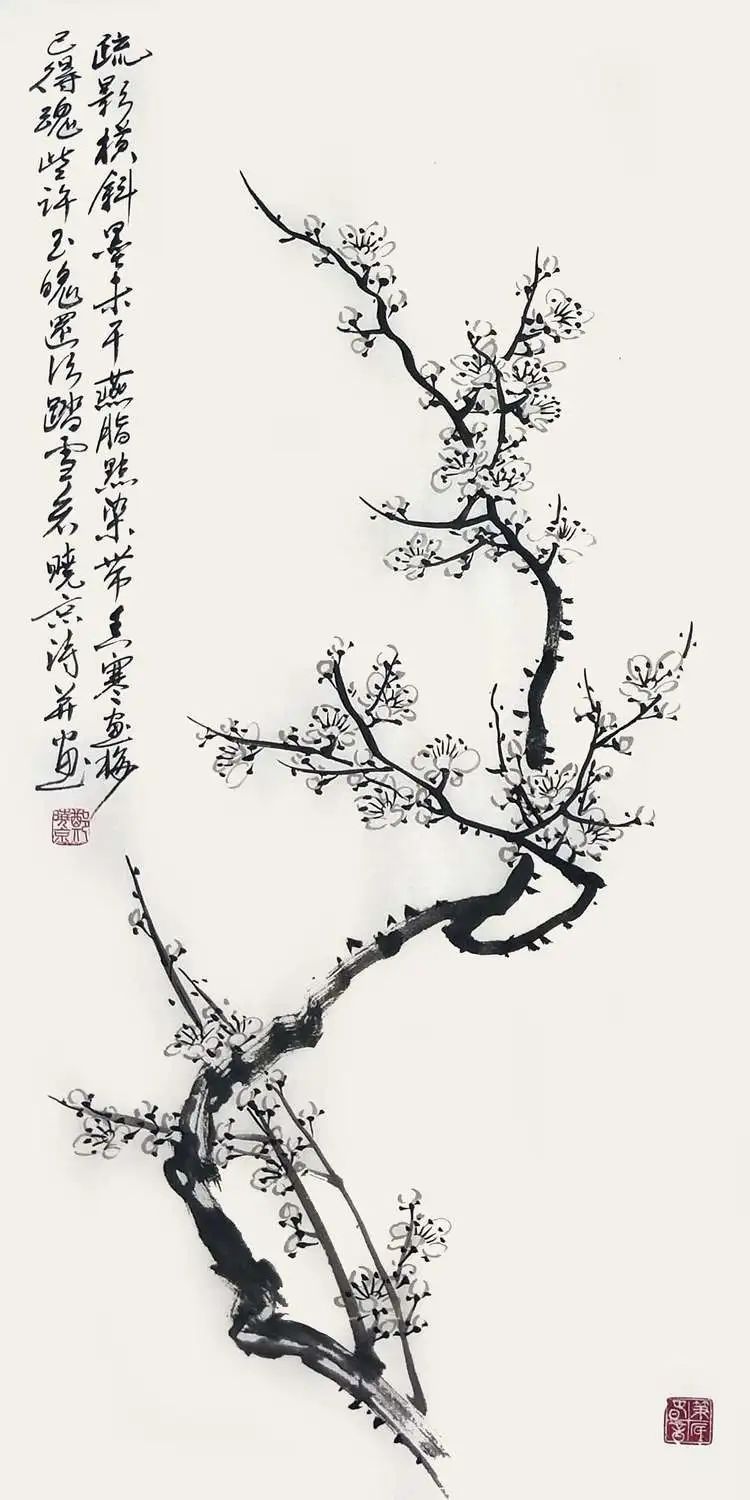 疏影横斜墨未干燕脂點染带春寒画梅
已得魂些许玉魄還须踏雪看曉京诗并画